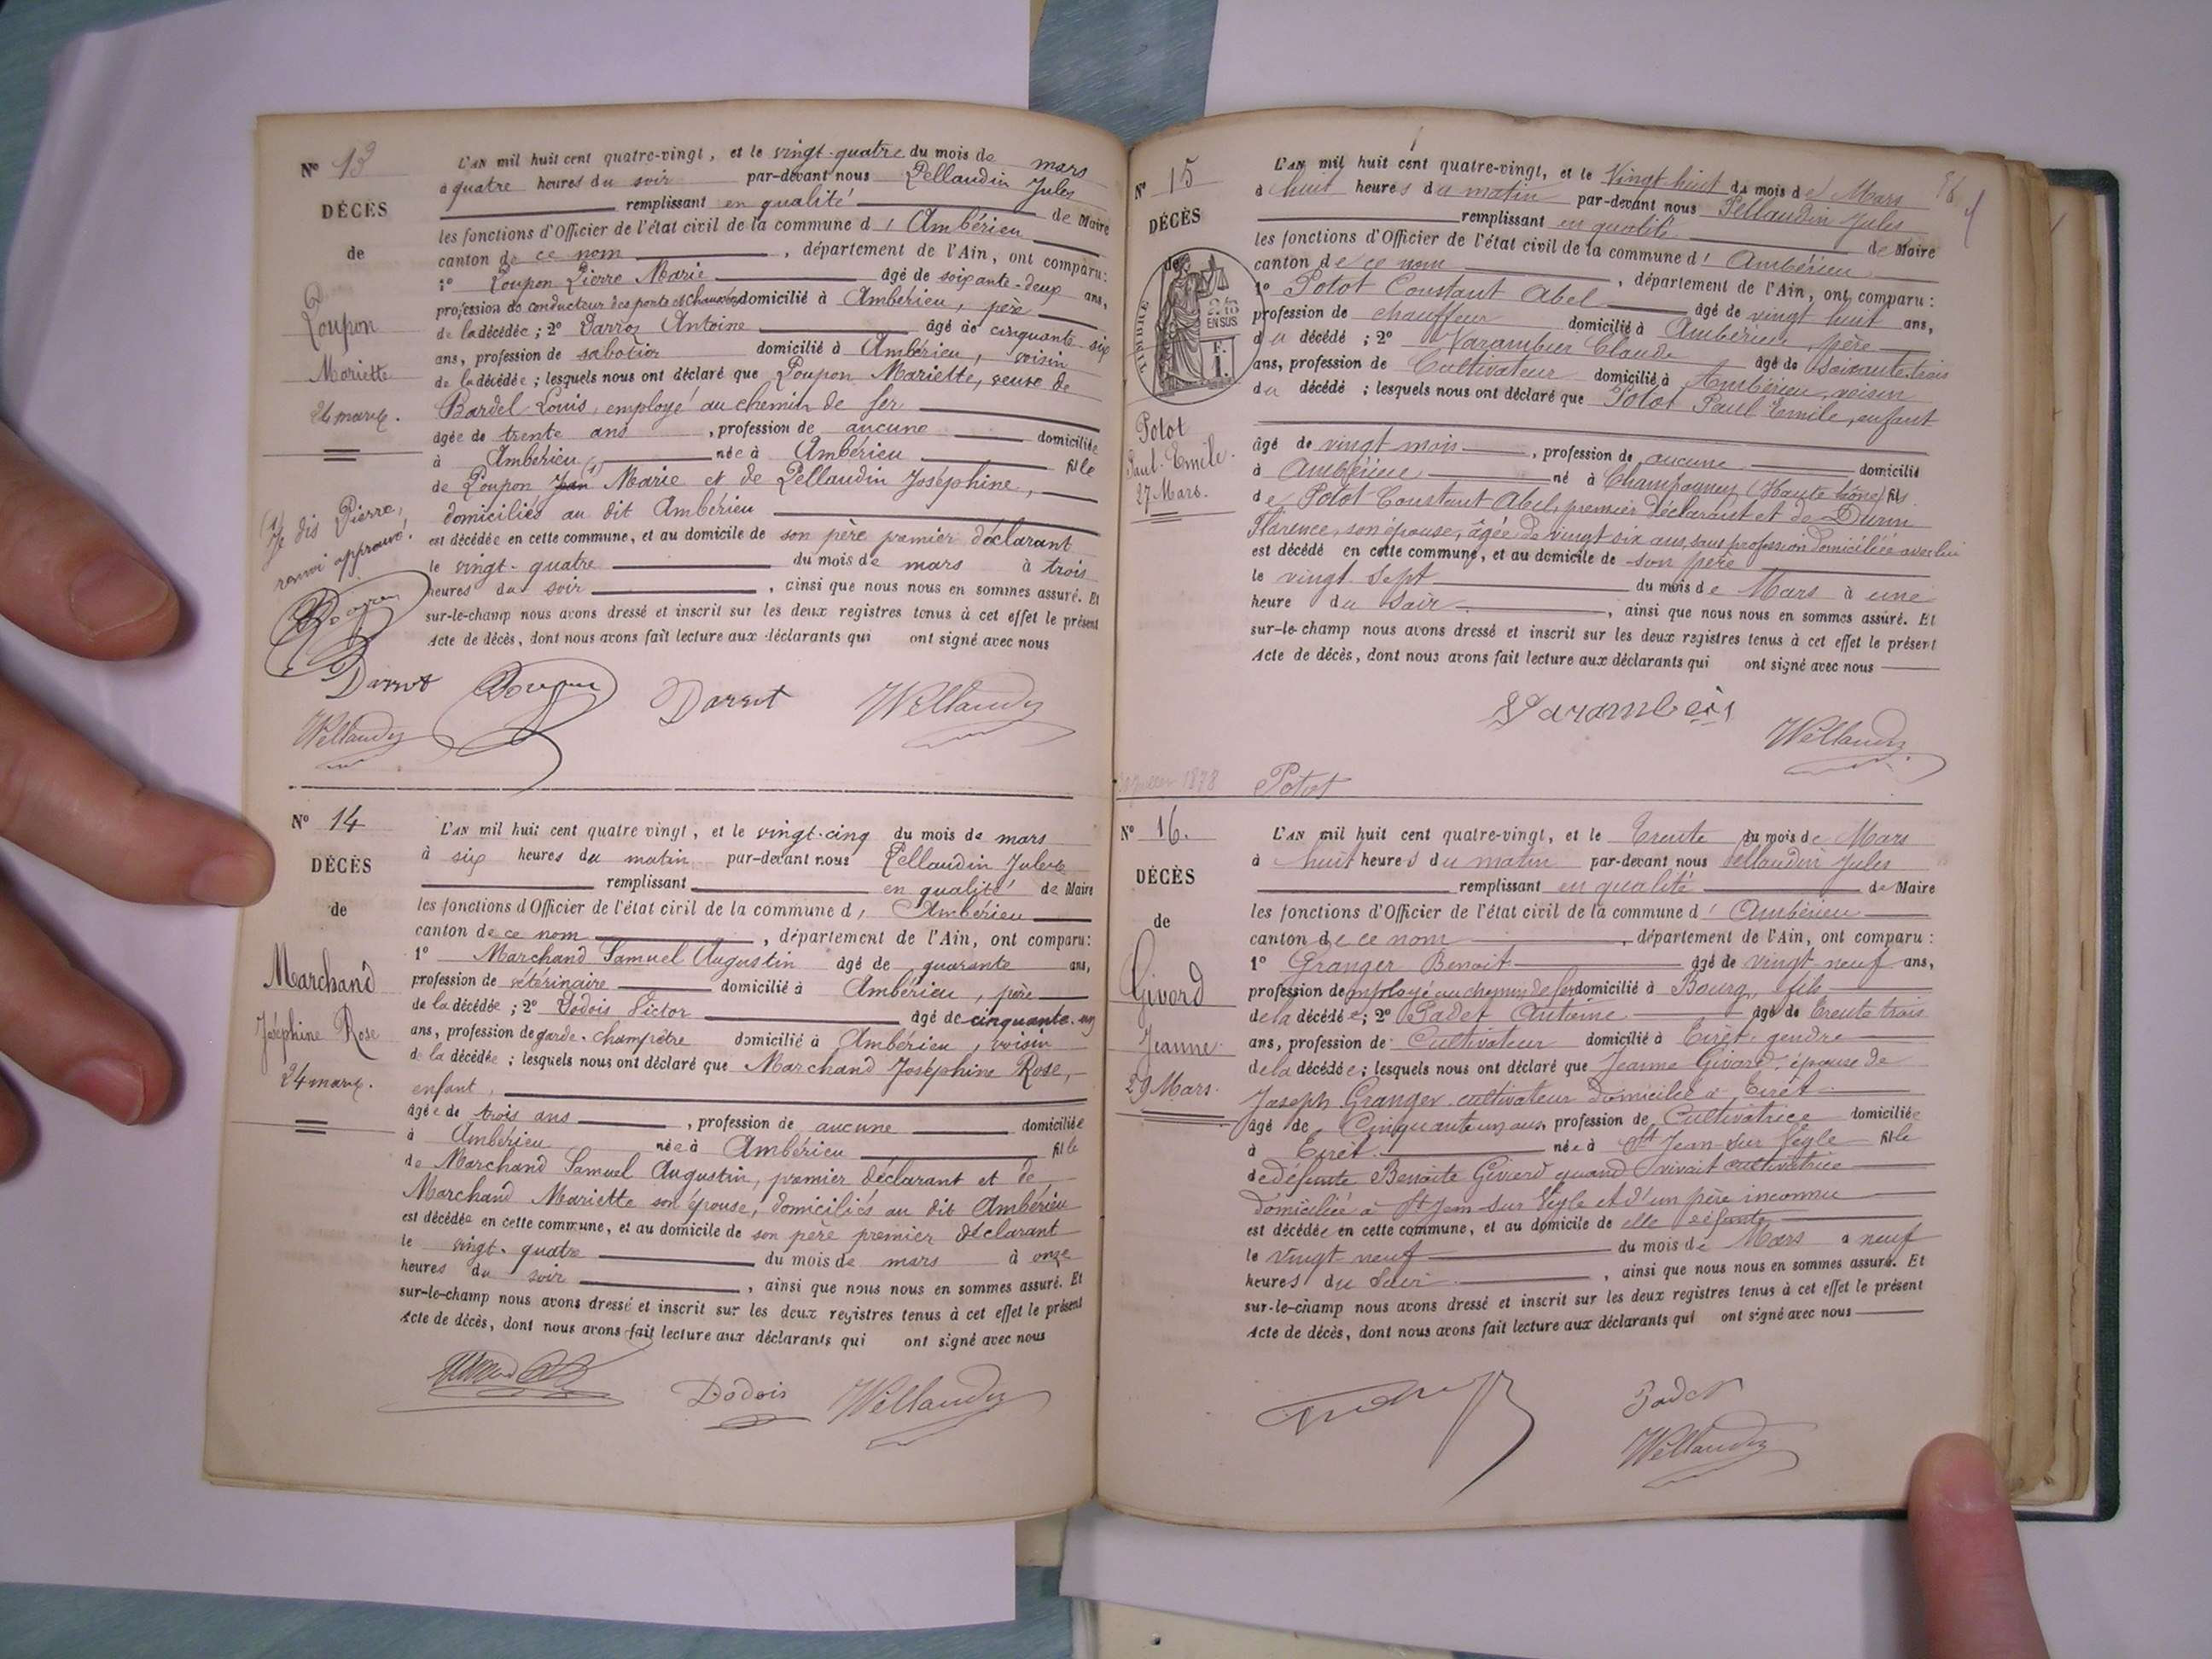 N° 13
DÉCÈS
de
Poupon
Mariette
24 mars.
(1) Je dis Pierre,
renvoi approuvé.
L'AN mil huit cent quatre-vingt, et le vingt-quatre du mois de mars
à quatre heures du soir par-devant nous Pellaudin Jules
remplissant en qualité de Maire
les fonctions d'Officier de l'état civil de la commune d' Ambérieu
canton de ce nom, département de l'Ain, ont comparu :
1° Poupon Pierre Marie âgé de soixante-deux ans,
profession de conducteur des ponts et chaussées domicilié à Ambérieu, père
de la décédée ; 2° Darroz Antoine âgé de cinquante-six
ans, profession de sabotier domicilié à Ambérieu, voisin
de la décédée ; lesquels nous ont déclaré que Poupon Mariette, veuve de
Bardel Louis, employé au chemin de fer
âgée de trente ans, profession de aucune domiciliée
à Ambérieu née à Ambérieu fille
de Poupon Jean (1) Marie et de Pellaudin Joséphine,
domiciliés au dit Ambérieu
est décédée en cette commune, et au domicile de son père premier déclarant
le vingt-quatre du mois de mars à trois
heures du soir, ainsi que nous nous en sommes assuré. Et
sur-le-champ nous avons dressé et inscrit sur les deux registres tenus à cet effet le présent
Acte de décès, dont nous avons fait lecture aux déclarants qui ont signé avec nous
N° 14
DÉCÈS
de
Marchand
Joséphine Rose
24 mars.
L'AN mil huit cent quatre vingt, et le vingt-cinq du mois de mars
à six heures du matin par-devant nous Pellaudin Jules
remplissant en qualité de Maire
les fonctions d'Officier de l'état civil de la commune d' Ambérieu
canton de ce nom, département de l'Ain, ont comparu :
1° Marchand Samuel Augustin âgé de quarante ans,
profession de vétérinaire domicilié à Ambérieu, père
de la décédée ; 2° Dodois Victor âgé de cinquante-un
ans, profession de garde-champêtre domicilié à Ambérieu, voisin
de la décédée ; lesquels nous ont déclaré que Marchand Joséphine Rose,
enfant,
âgée de trois ans, profession de aucune domiciliée
à Ambérieu née à Ambérieu fille
de Marchand Samuel Augustin, premier déclarant et de
Marchand Mariette son épouse, domiciliés au dit Ambérieu
est décédée en cette commune, et au domicile de son père premier déclarant
le vingt-quatre du mois de mars à onze
heures du soir, ainsi que nous nous en sommes assuré. Et
sur-le-champ nous avons dressé et inscrit sur les deux registres tenus à cet effet le présent
Acte de décès, dont nous avons fait lecture aux déclarants qui ont signé avec nous
Dodois
N° 15
DÉCÈS
de
TIMBRE
EN SUS
F. 1.
Potot
Paul Emile.
27 Mars.
L'AN mil huit cent quatre-vingt, et le Vingt huit du mois de Mars
à huit heures du matin par-devant nous Pellaudin Jules
remplissant en qualité de Maire
les fonctions d'Officier de l'état civil de la commune d' Ambérieu
canton de ce nom, département de l'Ain, ont comparu :
1° Potot Constant Abel âgé de vingt huit ans,
profession de chauffeur domicilié à Ambérieu, père
du décédé ; 2° Varambier Claude âgé de soixante-trois
ans, profession de Cultivateur domicilié à Ambérieu, voisin
du décédé ; lesquels nous ont déclaré que Potot Paul Emile, enfant
âgé de vingt mois, profession de aucune domicilié
à Ambérieu né à Champagney (Haute Saône) fils
de Potot Constant Abel, premier déclarant et de Durin
Florence, son épouse, âgée de vingt six ans, sans profession domiciliée avec lui
est décédé en cette commune, et au domicile de son père
le vingt-sept du mois de Mars à une
heure du Soir, ainsi que nous nous en sommes assuré. Et
sur-le-champ nous avons dressé et inscrit sur les deux registres tenus à cet effet le présent
Acte de décès, dont nous avons fait lecture aux déclarants qui ont signé avec nous
1878
Potot
N° 16.
DÉCÈS
de
Givord
Jeanne
29 Mars.
L'AN mil huit cent quatre-vingt, et le Trente du mois de Mars
à huit heures du matin par-devant nous Pellaudin Jules
remplissant en qualité de Maire
les fonctions d'Officier de l'état civil de la commune d' Ambérieu
canton de ce nom, département de l'Ain, ont comparu :
1° Granger Benoit âgé de vingt-neuf ans,
profession de employé au chemin de fer domicilié à Bourg, fils
de la décédée ; 2° Badet Antoine âgé de Trente trois
ans, profession de Cultivateur domicilié à Tiret, gendre
de la décédée ; lesquels nous ont déclaré que Jeanne Givord, épouse de
Joseph Granger cultivateur domiciliée à Tiret
âgé de Cinquante un ans, profession de Cultivatrice domiciliée
à Tiret née à St Jean-sur-Veyle fille
de défunte Benoite Giverd quand vivait cultivatrice
domiciliée à St Jean-sur Veyle et d'un père inconnu
est décédée en cette commune, et au domicile de elle défunte
le Vingt-neuf du mois de Mars à neuf
heures du Soir, ainsi que nous nous en sommes assuré. Et
sur-le-champ nous avons dressé et inscrit sur les deux registres tenus à cet effet le présent
Acte de décès, dont nous avons fait lecture aux déclarants qui ont signé avec nous
Badet